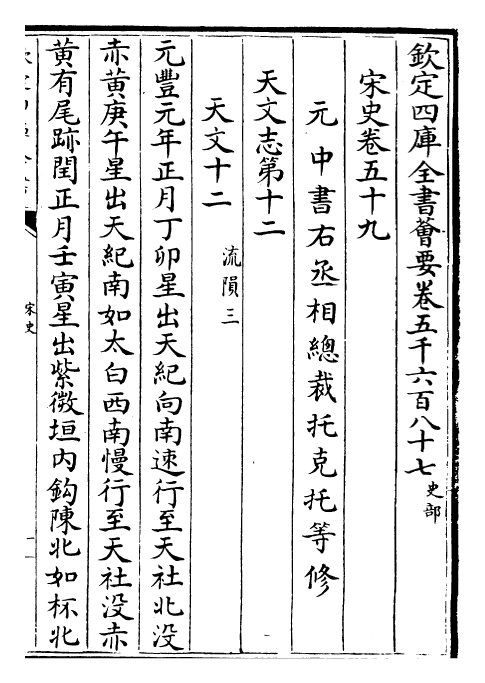 欽定四庫全書薈要卷五千六百八十七 史部
宋史卷五十九
元中書右丞相總裁托克托等修
天文志第十二
天文十二 流隕三
元豐元年正月丁卯星出天紀向南速行至天社北没
赤黄庚午星出天紀南如太白西南慢行至天社没赤
黄有尾跡閏正月壬寅星出紫微垣内鈎陳北如杯北
宋史